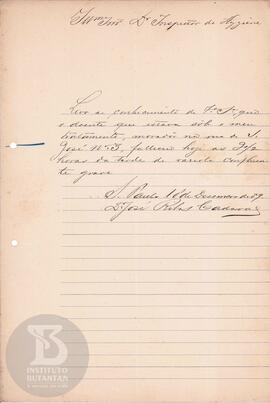 Illmo Snr Dr Inspector de Hygiene
Levo ao conhecimento de V.ª S.ª que
o doente que estava sob o meu
tratamento, morador na rua de S.
José nº 3, falleceu hoje as 3 1/2
horas da tarde de variola confluen-
te grave
S. Paulo 16 de Dezembro de 89.
Dr José Ribas
INSTITUTO
BUTANTAN